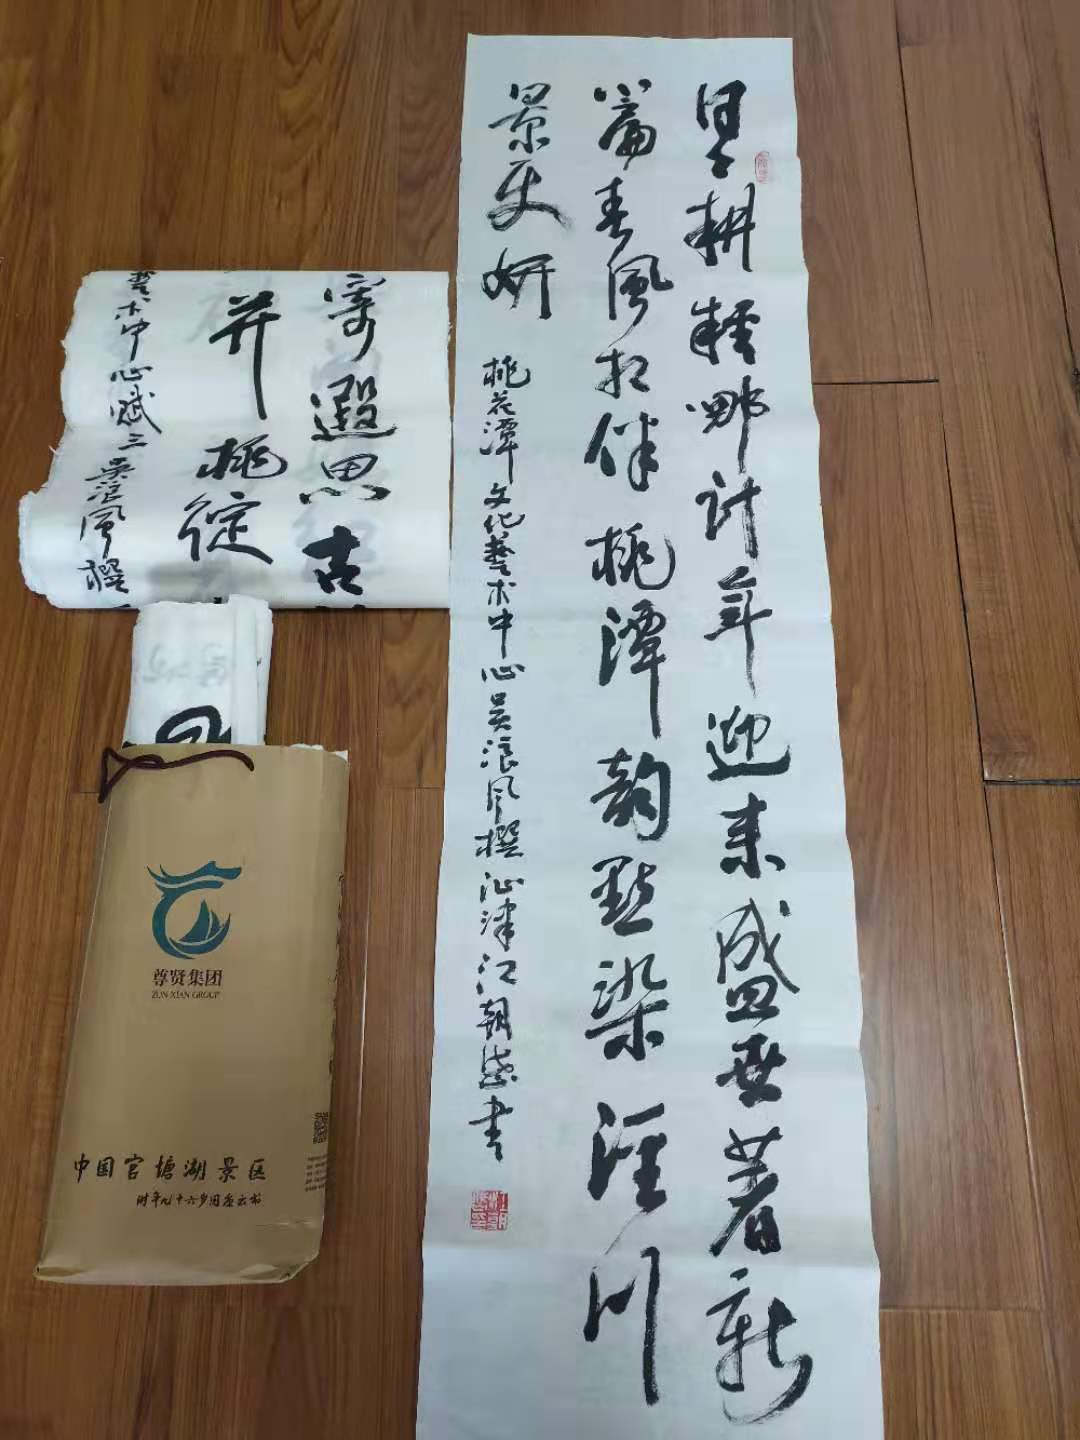 墨耕耘哪计年迎来盛世著新
篇春风相伴桃潭韵点染泾川
景更妍
桃花潭文化艺术中心吴浪风撰沁津江朝盛书
寄遐思古
并桃绽
艺术中心赋三吴浪风撰
尊贤集团
ZUN XIAN GROUP
中国官塘湖景区
时年九十六岁周唐云书